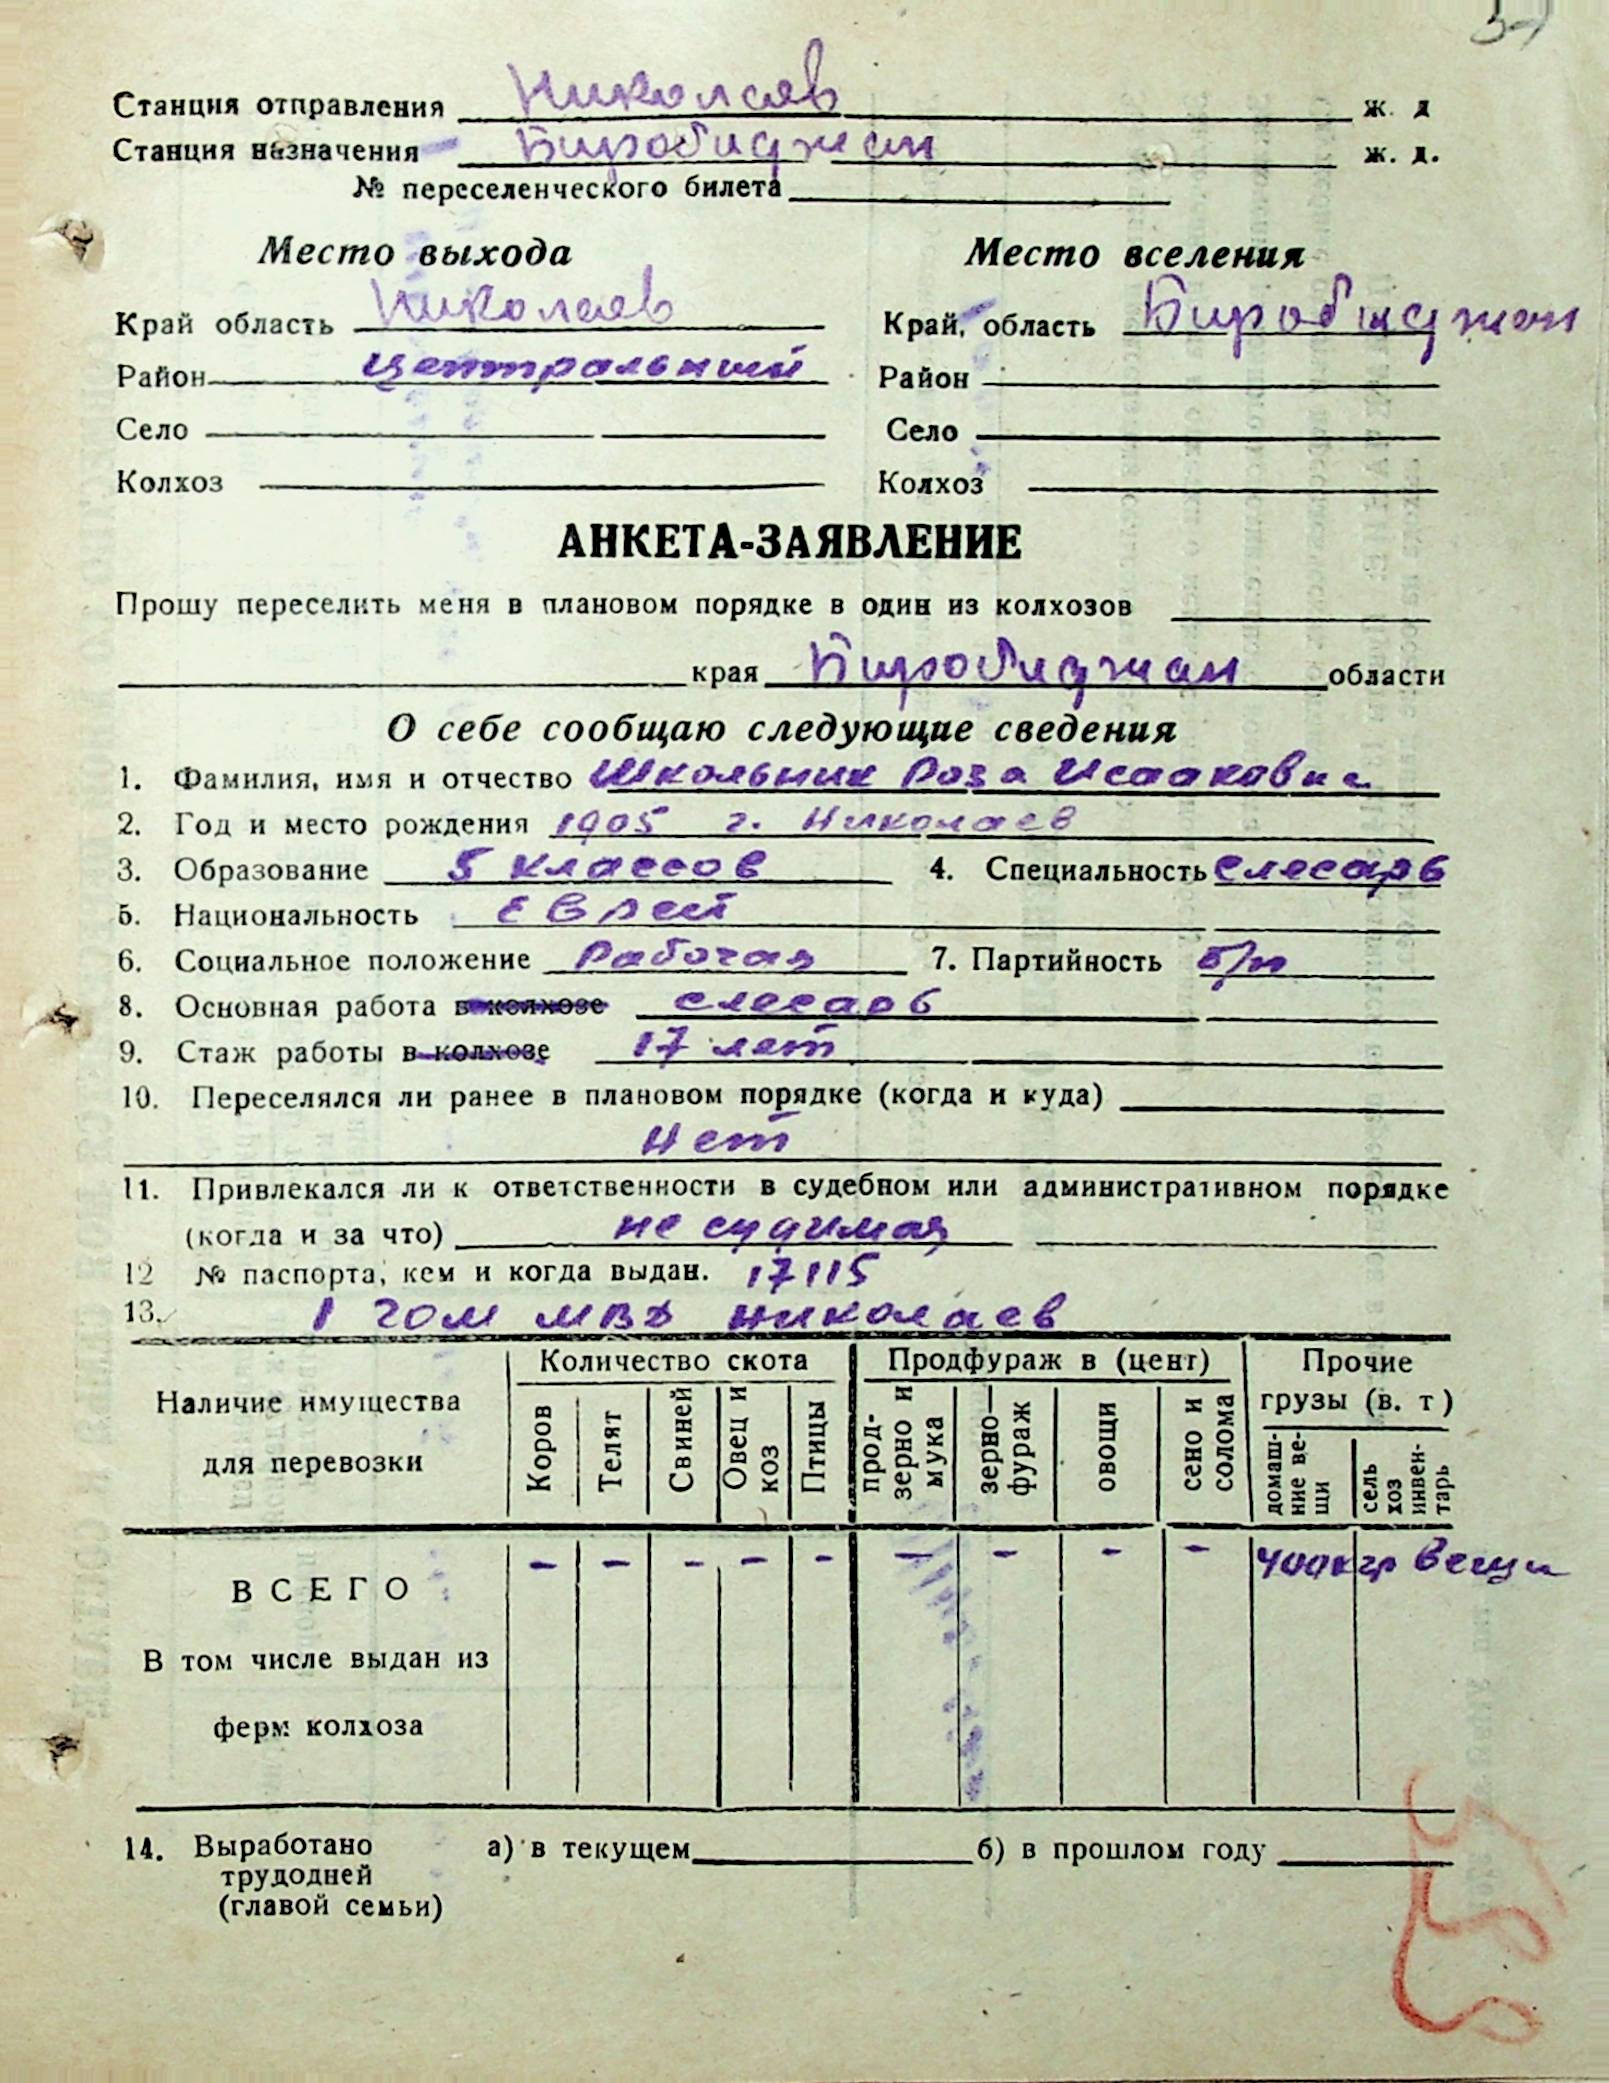 Станция отправления Николаев ж. д
Станция назначения Биробиджан ж. д.
№ переселенческого билета
Место выхода Место вселения
Край область Николаев Край, область Биробиджан
Район Центральный Район
Село Село
Колхоз Колхоз
АНКЕТА-ЗАЯВЛЕНИЕ
Прошу переселить меня в плановом порядке в один из колхозов
края Биробиджан области
О себе сообщаю следующие сведения
1. Фамилия, имя и отчество Школьник Роза Исааковна
2. Год и место рождения 1905 г. Николаев
3. Образование 5 классов 4. Специальность слесарь
5. Национальность Еврей
6. Социальное положение Рабочая 7. Партийность б/п
8. Основная работа в колхозе слесарь
9. Стаж работы в колхозе 17 лет
10. Переселялся ли ранее в плановом порядке (когда и куда)
Нет
11. Привлекался ли к ответственности в судебном или административном порядке
(когда и за что) не судимая
12 № паспорта, кем и когда выдан. 17115
13. 1 гом МВД Николаев
Наличие имущества для перевозки
Количество скота
Коров
Телят
Свиней
Овец и коз
Птицы
Продфураж в (цент)
прод-зерно и мука
зерно—фураж
овощи
сено и солома
Прочие грузы (в. т)
домаш-ние ве-щи
сель хоз инвен-тарь
ВСЕГО - - - - - - - - - 400 кгр вещи
В том числе выдан из
ферм колхоза
14. Выработано а) в текущем б) в прошлом году
трудодней
(главой семьи)